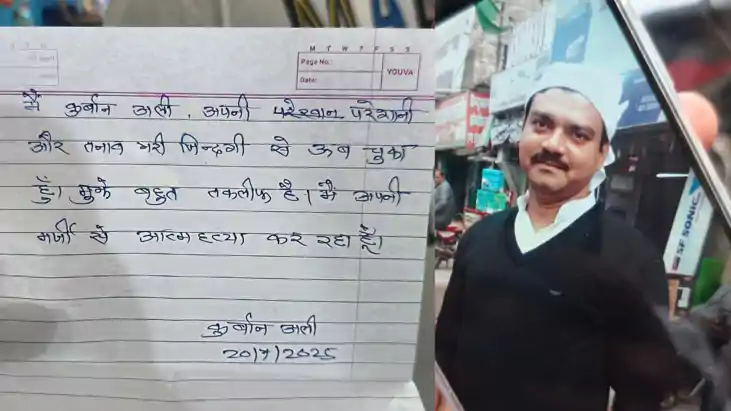 M T W T F S S
Page No.:
Date:
YOUVA
मैं कुर्बान अली, अपनी परेशान परेशानी
और तनाव भरी जिन्दगी से ऊब चुका
हूँ। मुझे बहुत तकलीफ है। मैं अपनी
मर्जी से आत्महत्या कर रहा हूँ।
कुर्बान अली
20/7/2025
SF SONIC